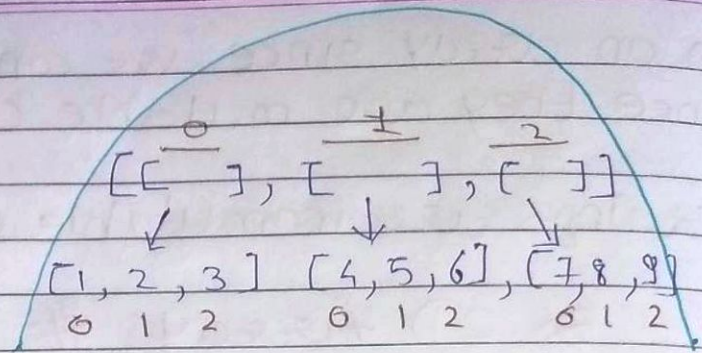 0 1 2
[[ ], [ ], [ ]]
[1, 2, 3] [4, 5, 6], [7, 8, 9]
0 1 2 0 1 2 0 1 2